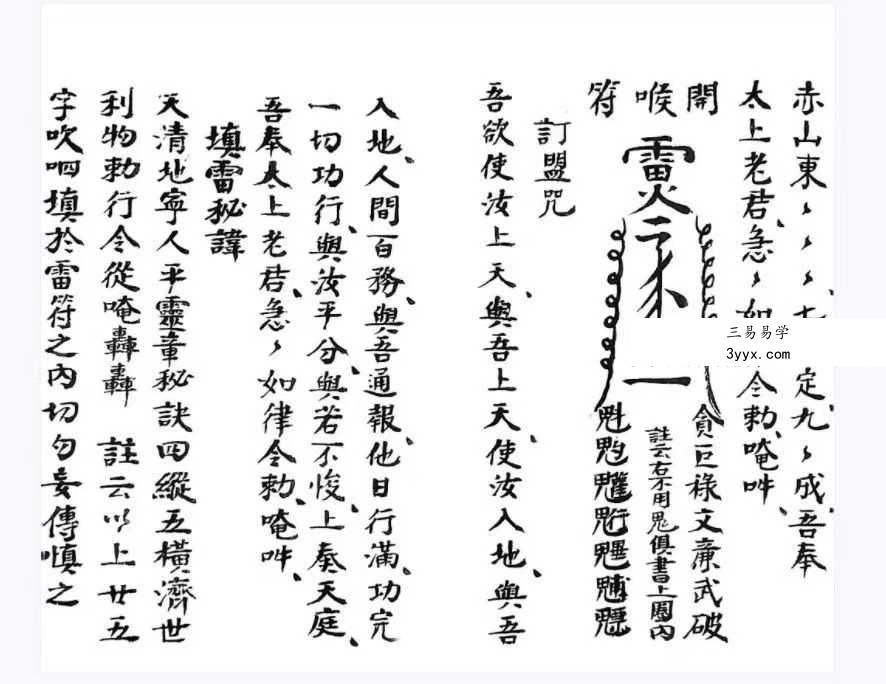 赤山東〻〻〻七
定九〻成、吾奉
太上老君、急〻如
令勅、唵吽、
開喉符
雷火
貪巨祿文廉武破
註云右不用鬼俱書上圈內
魁
訂盟咒
吾欲使汝上天、與吾上天、使汝入地、與吾
入地、人間百務、與吾通報、他日行滿、功完
一切功行、與汝平分、與若不悛、上奏天庭、
吾奉太上老君、急〻如律令勅、唵吽、
填雷秘諱
天清地寧人平靈章秘訣四縱五橫濟世
利物勅行令從唵轟轟 註云以上廿五
字吹呬填於雷符之內切勿妄傳慎之
三易易学
3yyx.com